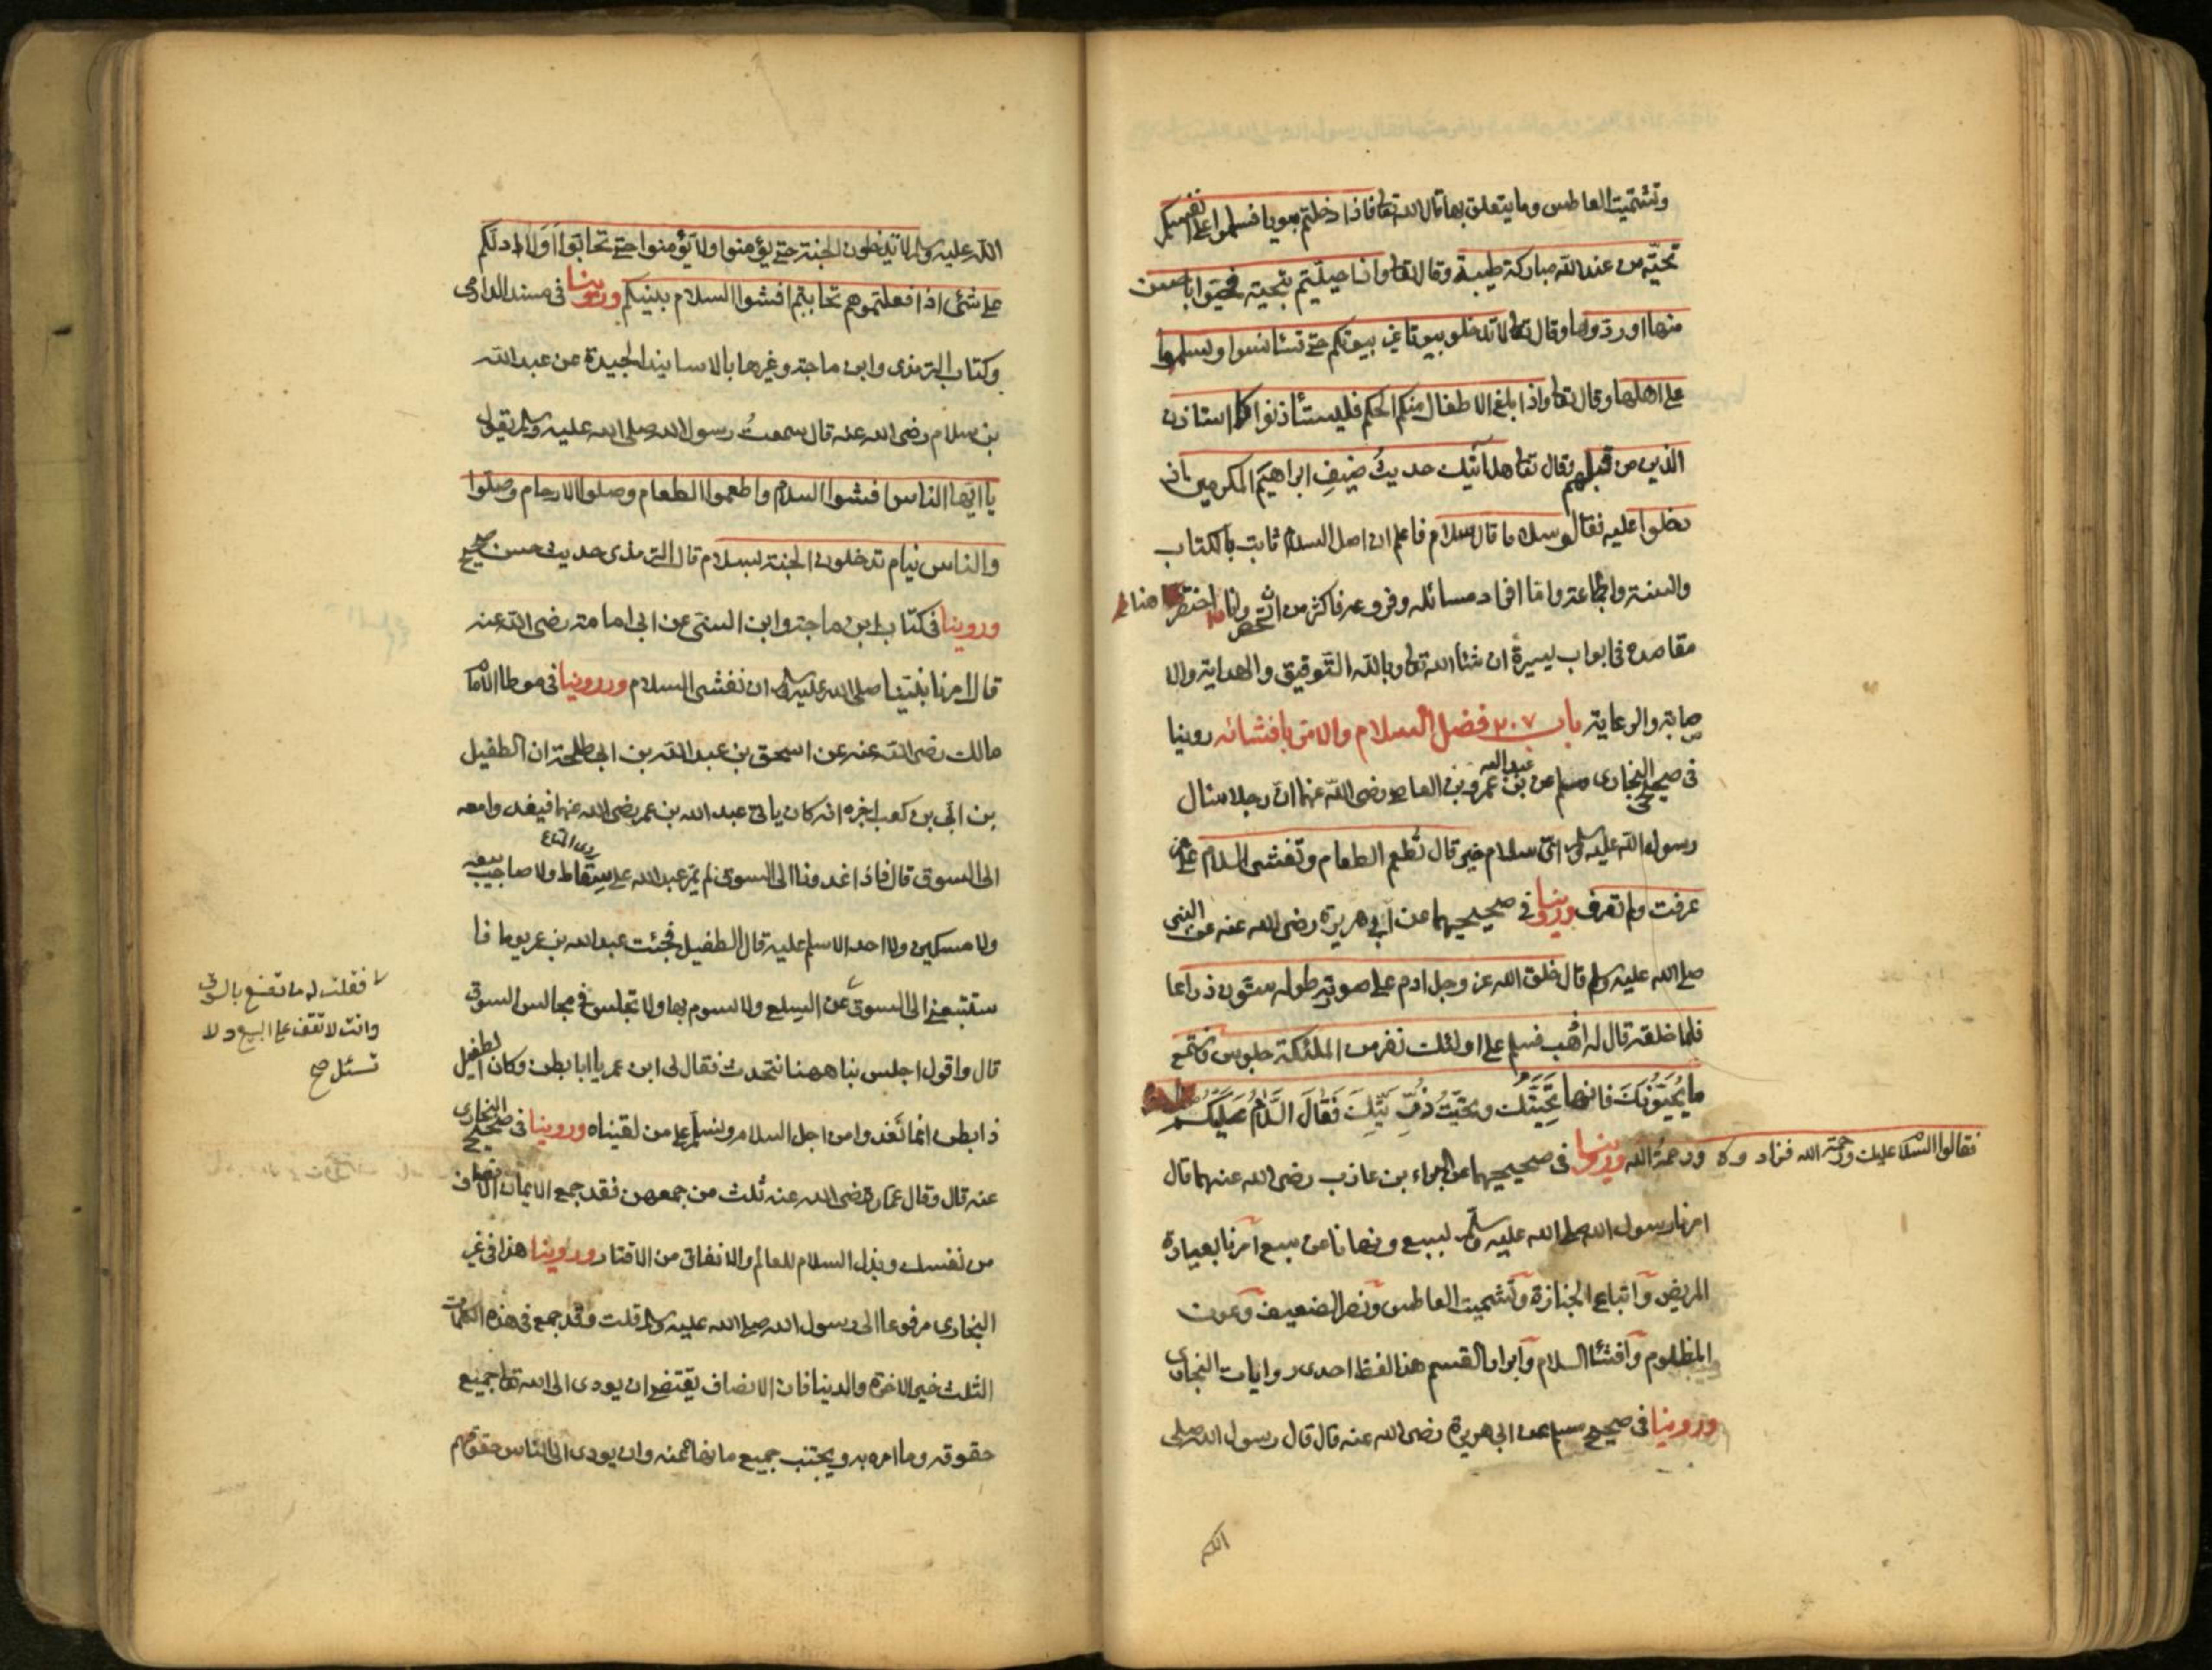 وتشميت العاطس وما يتعلق بها قال الله تعا فاذا دخلتم بيوتا فسلموا على انفسكم
تحيّة من عند الله مباركة طيبة وقال تعا واذا حييتم بتحية فحيوا باحسن
منها او ردوها وقال تعا لا تدخلو بيوتا غير بيوتكم حتى تستانسوا وتسلموا
على اهلها وقال تعا واذا بلغ الاطفال منكم الحكم فليستأذنوا كما استاذن
الذين من قبلهم وقال تعا هل اتيك حديث ضيف ابراهيم المكرمين اذ
دخلوا عليه فقالو سلاما قال سلام فاعلم ان اصل السلام ثابت بالكتاب
والسنة والجماعة واما افراد مسائله وفروعه فاكثر من ان تحصر وانا اختصر
مقاصده في ابواب يسيرة ان شاء الله تعا وبالله التوفيق والهداية والا
صابة والرعاية باب ٢٠٧ فضل السلام والامر بافشائه روينا
في صحيحى البخارى ومسلم عن عبد الله بن عمرو بن العاص رضى الله عنهما ان رجلا سال
رسول الله عليه وسلم اىّ سلام خير قال تطعم الطعام وتفشى السلام على من
عرفت ولم تعرف وروينا في صحيحيهما عن ابي هريرة رضى الله عنه عن النبى
صلى الله عليه وسلم قال خلق الله عز وجل ادم على صورته طوله ستون ذراعا
فلما خلقه قال له اذهب فسلم على اولئك نفر من الملئكة جلوس فاستمع
ما يُحَيّونَكَ فانها تَحِيَّتُك وتحيّتُ ذُرِّيَّتِكَ فَقَالَ السَّلامُ عَلَيْكُم
فقالوا السلام عليك ورحمة الله فزادوه ورحمة الله وروينا في صحيحيهما عن البراء بن عازب رضى الله عنهما قال
امرنا رسول الله صلى الله عليه وسلم بسبع ونهانا عن سبع امرنا بعيادة
المريض واتباع الجنازة وتشميت العاطس ونصر الضعيف وعون
المظلوم وافشاء السلام وابرار القسم هذا لفظ احدى روايات البخارى
وروينا في صحيح مسلم عن ابي هريرة رضى الله عنه قال قال رسول الله صلى
الله عليه وسلم لا تدخلون الجنة حتى يؤمنوا ولا تؤمنوا حتى تحابّوا اَوَلا ادلكم
على شئى اذا فعلتموهم تحاببتم افشوا السلام بينكم وروينا في مسند الدارمى
وكتاب الترمذى وابن ماجة وغيرها بالاسانيد الجيدة عن عبد الله
بن سلام رضى الله عنه قال سمعتُ رسول الله صلى الله عليه وسلم يقول
يا ايّها الناس افشوا السلام واطعموا الطعام وصلوا الارحام وصلوا
والناس نيام تدخلون الجنة بسلام قال الترمذى حديث حسن صحيح
وروينا في كتاب ابن ماجة وابن السنى عن ابى امامة رضى الله عنه
قال امرنا نبينا صلى الله عليه وسلم ان نفشى السلام وروينا فى موطا الامام
مالك رضى الله عنه عن اسحق بن عبد الله بن ابى طلحة ان الطفيل
بن ابّى بن كعب اخبره انه كان ياتى عبد الله بن عمر رضى الله عنهما فيغدوامعه
ردى المتاع
الى السوق قال فاذا غدونا الى السوق لم يمر عبد الله على سقاط ولا صاحب بيعه
ولا مسكين ولا احد الا سلم عليه قال الطفيل فجئت عبد الله بن عمر يوما فا
ستتبعنى الى السوق عن السلع ولا تسوم بها ولا تجلس في مجالس السوق
فقلت له ما تصنع بالسوق
وانت لا تقف على البيع ولا
تسئل صح
قال واقول اجلس بنا ههنا نتحدث فقال لى ابن عمر يا ابا بطن وكان الطفيل
ذا بطن انما نغدوا من اجل السلام ونسلم على من لقيناه وروينا في صحيح البخارى
عنه قال وقال عمار رضى الله عنه ثلث من جمعهن فقد جمع الايمان الانصاف
من نفسك وبذل السلام للعالم والانفاق من الاقتار وروينا هذا فى غير
البخارى مرفوعا الى رسول الله صلى الله عليه وسلم قلت وقد جمع فى هذه الكلمات
الثلث خير الاخرة والدنيا فان الانصاف يقتضى ان يودى الى الله تعا جميع
حقوقه وما امره به ويجتنب جميع ما نهاه عنه وان يودى الى الناس حقوقهم